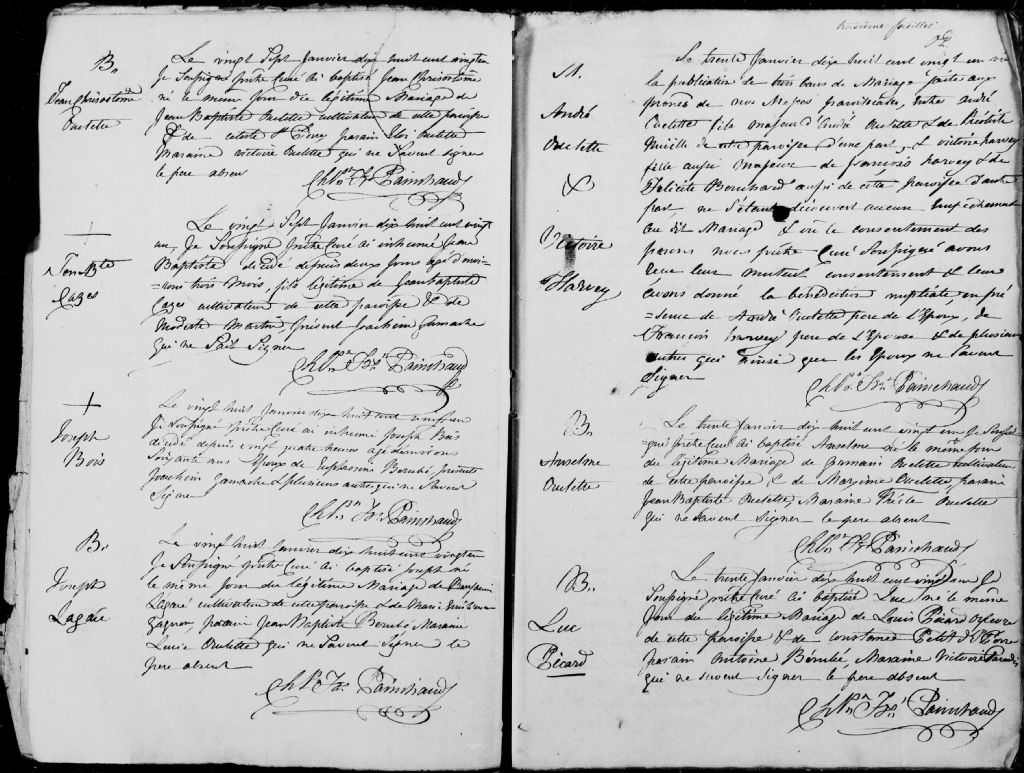 B.
Jean Chrisostome
Ouelette
Le vingt Sept Janvier dix huit cent vingt un
Je Soussigné prêtre Curé ai baptisé Jean Chrisostome
né le meme Jour du légitime Mariage de
Jean Baptiste Ouelette cultivateur de cette paroisse
& de celeste St Pierre parain Eloi Ouelette
Maraine victoire Ouelette qui ne Savent signer
le pere absent
Chs Frs Painchaud
+
Jean Bte
Cazes
Le vingt Sept Janvier dix huit cent vingt
un, Je Soussigné prêtre Curé ai inhumé Jean
Baptiste décédé depuis deux Jours agé d'envi-
=rons trois Mois, fils légitime de Jean Baptiste
Cazes cultivateur de cette paroisse & de
Modeste Martin, présent Joachim Gamache
qui ne Sait Signer
Chs Frs Painchaud
+
Joseph
Bois
Le vingt huit Janvier dix huit cent vingt un
Je Soussigné prêtre Curé ai inhumé Joseph Bois
décédé depuis vingt quatre heures agé denvirons
Soixante ans Epoux de Euphrosine Berubé présents
Joachim Gamache & plusieurs autres qui ne Savent
Signer
Chs Frs Painchaud
B.
Joseph
Lagacé
Le vingt huit Janvier dix huit cent vingt un
Je Soussigné prêtre Curé ai baptisé Joseph né
le même Jour du legitime Mariage de Benjamin
Lagacé cultivateur de cette paroisse & de Marie
Gagnon, parain Jean Baptiste Berubé Maraine
Lucie Ouelette qui ne Savent Signer le
pere absent
Chs Frs Painchaud
troisieme feuillet
M.
André
Ouelette
&
Victoire
Harvey
Le trente Janvier dix huit cent vingt un vu
la publication de trois bans de Mariage faite aux
prones de nos Messes paroissiales, entre André
Ouelette fils majeur d'André Ouelette & de Théotiste
Miville de cette paroisse d'une part, & victoire harvey
fille aussi majeure de françois harvey & de
Félicité Bouchard aussi de cette paroisse d'autre
part, ne S'étant découvert aucun empéchement
au dit Mariage & vu le consentement des
parens nous prêtre Curé Soussigné avons
recu leur mutuel consentement & leur
avons donné la bénédiction nuptiale en pré
=sence de André Ouelette pere de L'Epoux, de
François harvey pere de L'Epouse & de plusieurs
autres qui Ainsi que les Epoux ne Savent
Signer
Chs Frs Painchaud
B.
Anselme
Ouelette
Le trente Janvier dix huit cent vingt un Je Soussi
=gné prêtre Curé ai baptisé Anselme né le même Jour
du légitime Mariage de Germain Ouelette cultivateur
de cette paroisse & de Maxime Ouelette, parain
Jean Baptiste Ouelette, Maraine Thécle Ouelette
qui ne Savent Signer le pere absent
Chs Frs Painchaud
B.
Luc
Picard
Le trente Janvier dix huit cent vingt un Je
Soussigné prêtre Curé ai baptisé Luc né le même
Jour du légitime Mariage de Louis Picard
de cette paroisse & de constance Petit dt St Pierre
parain Antoine Bérubé, Maraine Victoire Paradis
qui ne Savent Signer le pere absent
Chs Frs Painchaud